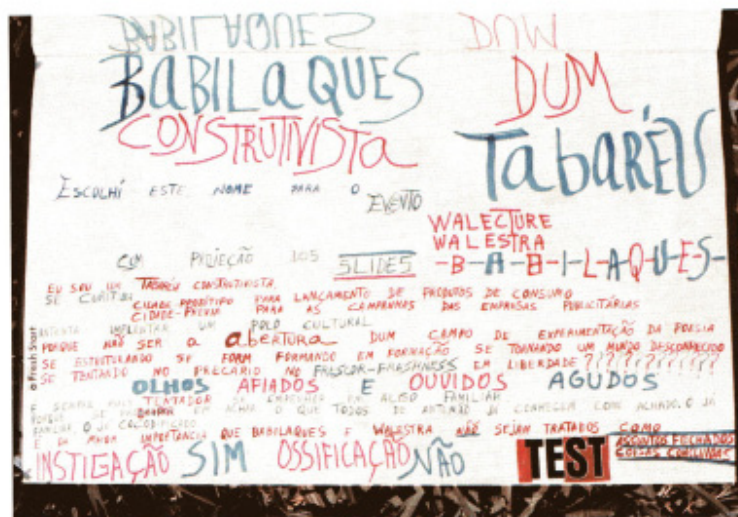 BABILAQUES DUM
BABILAQUES DUM
CONSTRUTIVISTA TABARÉU
ESCOLHI ESTE NOME PARA O EVENTO
WALECTURE
WALESTRA
COM PROJEÇÃO 105 SLIDES -B-A-B-I-L-A-Q-U-E-S-
EU SOU UM TABARÉU CONSTRUTIVISTA.
SE CURITIBA
CIDADE-PROTÓTIPO PARA LANÇAMENTO DE PRODUTOS DE CONSUMO
CIDADE-PRÉVIA PARA AS CAMPANHAS DAS EMPRESAS PUBLICITÁRIAS
INTENTA IMPLANTAR UM POLO CULTURAL
PORQUE NÃO SER A ABERTURA DUM CAMPO DE EXPERIMENTAÇÃO DA POESIA
SE ESTRUTURANDO SE FORM FORMANDO EM FORMAÇÃO SE TORNANDO UM MUNDO DESCONHECIDO
SE TENTANDO NO PRECÁRIO NO FRESCOR-FRESHNESS EM LIBERDADE ????????????
a Fresh Start
OLHOS AFIADOS E OUVIDOS AGUDOS
E SEMPRE MAIS TENTADOR SE EMPENHAR EM ALGO FAMILIAR
PORQUE SE EM ACHAR O QUE TODOS DE ANTEMÃO JÁ CONHECEM COMO ACHADO. O JÁ
FAMILIAR, O JÁ CODIFICADO
E DA MAIOR IMPORTÂNCIA QUE BABILAQUES E WALESTRA NÃO SEJAM TRATADOS COMO
ASSUNTOS FECHADOS
COISAS CONCLUSAS
INSTIGAÇÃO SIM OSSIFICAÇÃO NÃO TEST